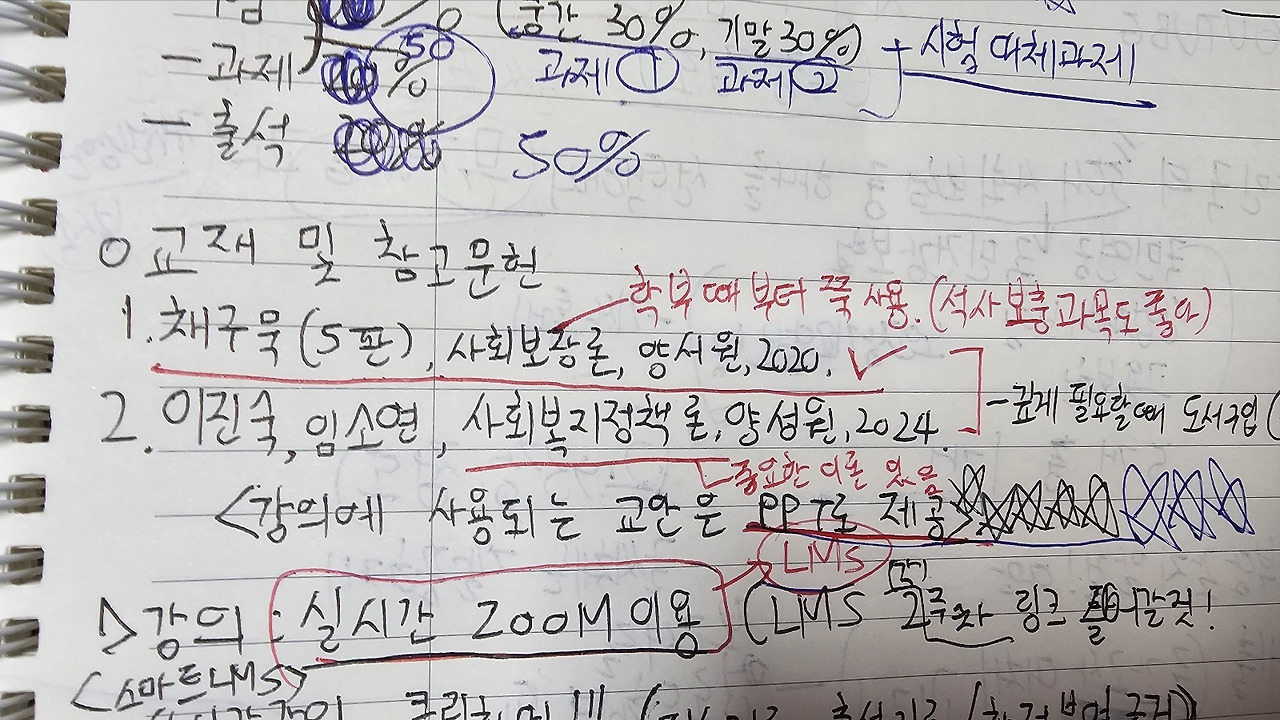 (중간 30%, 기말 30%) + 시험 대체과제
- 과제 50% 과제① 과제②
- 출석 50%
○ 교재 및 참고문헌
학부 때부터 쭉 사용. (석사보충과목도 좋아)
1. 채구묵(5판), 사회보장론, 양서원, 2020. ✓
2. 이진숙, 임소연, 사회복지정책론, 양성원, 2024.
필요할때 도서구입
중요한 이론 있음
<강의에 사용되는 교안은 PPT로 제공>
LMS
▷강의 : 실시간 ZOOM 이용 (LMS 2주차 링크 갈것!
<스마트LMS>